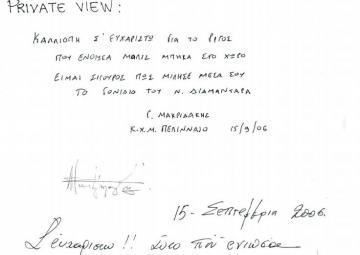 PRIVATE VIEW:
ΚΑΛΛΙΟΠΗ Σ' ΕΥΧΑΡΙΣΤΩ ΓΙΑ ΤΟ ΡΙΓΟΣ
ΠΟΥ ΕΝΟΙΩΣΑ ΜΟΛΙΣ ΜΠΗΚΑ ΣΤΟ ΧΩΡΟ
ΕΙΜΑΙ ΣΙΓΟΥΡΟΣ ΠΩΣ ΜΙΛΗΣΕ ΜΕΣΑ ΣΟΥ
ΤΟ ΓΟΝΙΔΙΟ ΤΟΥ Ν. ΔΙΑΜΑΝΤΑΡΑ
Γ. ΜΑΚΡΙΔΑΚΗΣ
Κ.Χ.Μ. ΠΕΛΙΝΝΑΙΟ 15/9/06
15- Σεπτεμβρια 2006.
Σ' ευχαριστω!!